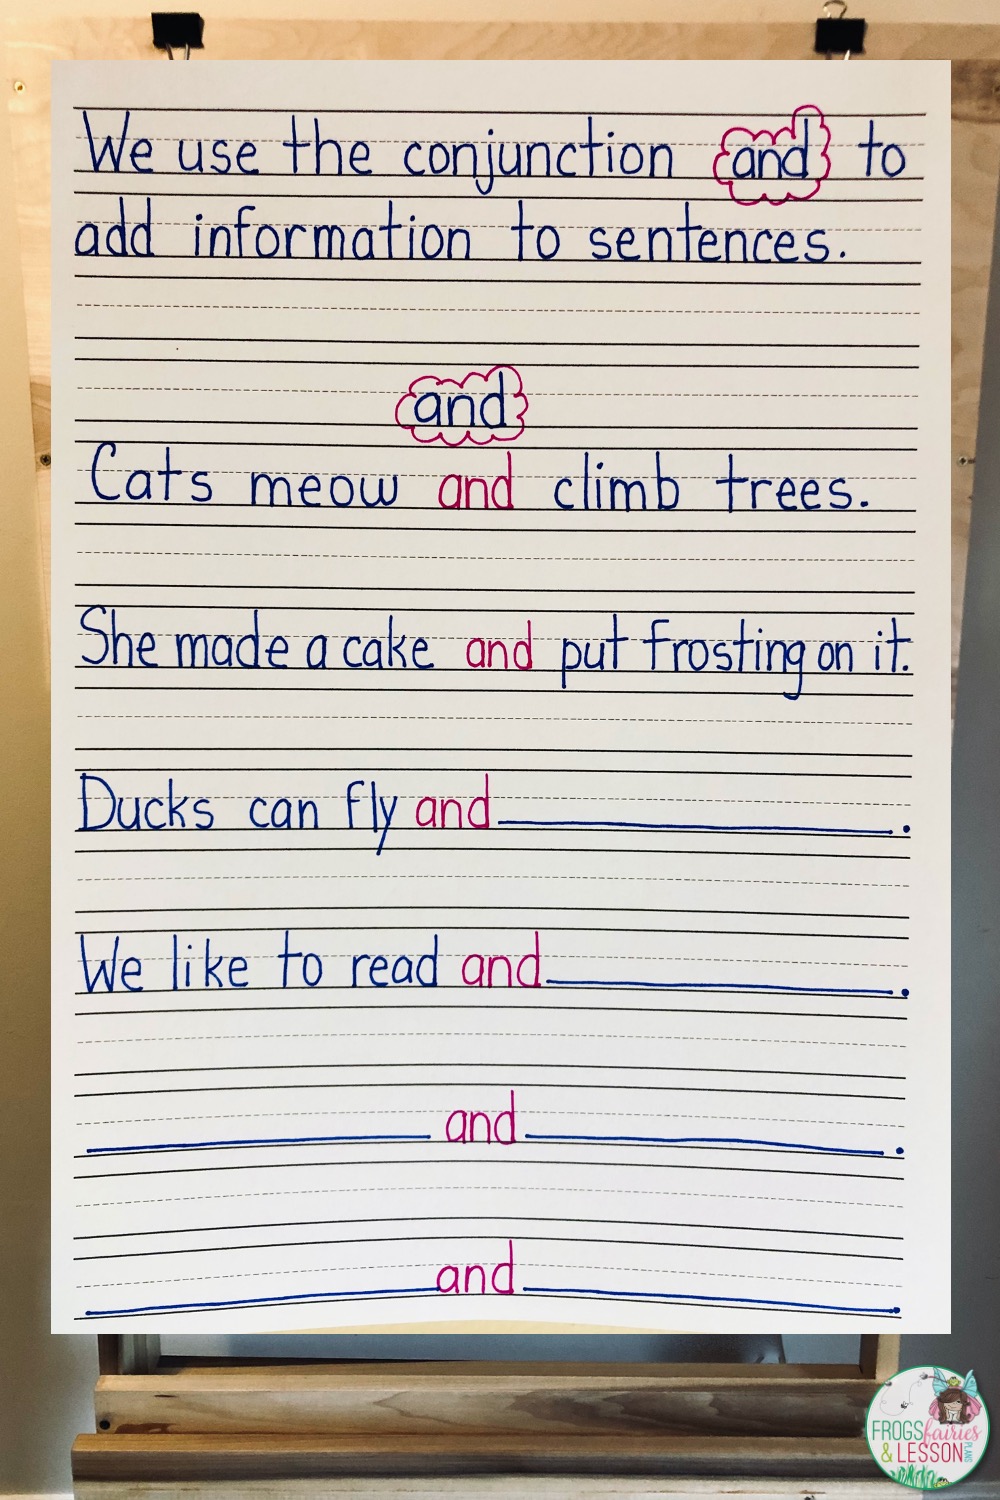 We use the conjunction and to
add information to sentences.
and
Cats meow and climb trees.
She made a cake and put frosting on it.
Ducks can fly and ____.
We like to read and ____.
____ and ____.
____ and ____.
FROGS fairies
& LESSON PLANS